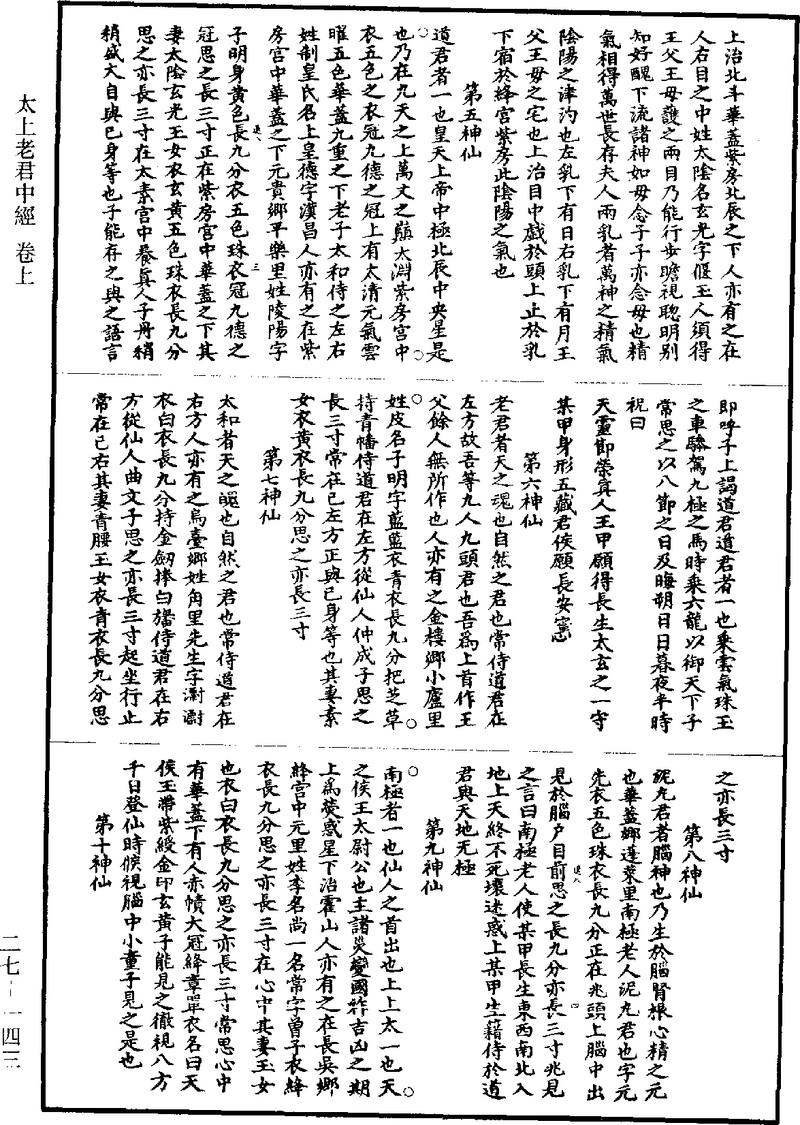 太上老君中經 卷上
上治北斗華蓋紫房北辰之下人亦有之在
人右目之中姓太陰名玄光字偃玉人須得
王父王母護之兩目乃能行步瞻視聰明別
知好醜下流諸神如母念子子亦念母也精
氣相得萬世長存夫人兩乳者萬神之精氣
陰陽之津汋也左乳下有日右乳下有月王
父王母之宅也上治目中戲於頭上止於乳
下宿於絳宮紫房此陰陽之氣也
第五神仙
道君者一也皇天上帝中極北辰中央星是
也乃在九天之上萬丈之巔太淵紫房宮中
衣五色之衣冠九德之冠上有太清元氣雲
曜五色華蓋九重之下老子太和侍之左右
姓制皇氏名上皇德字漢昌人亦有之在紫
房宮中華蓋之下元貴鄉平樂里姓陵陽字
子明身黃色長九分衣五色珠衣冠九德之
冠思之長三寸正在紫房宮中華蓋之下其
妻太陰玄光玉女衣玄黃五色珠衣長九分
思之亦長三寸在太素宮中養真人子丹稍
稍盛大自與己身等也子能存之與之語言
即呼子上謁道君道君者一也乘雲氣珠玉
之車驂駕九極之馬時乘六龍以御天下子
常思之以八節之日及晦朔日日暮夜半時
祝曰
天靈節榮真人王甲願得長生太玄之一守
某甲身形五藏君侯願長安寧
第六神仙
老君者天之魂也自然之君也常侍道君在
左方故吾等九人九頭君也吾為上首作王
父餘人無所作也人亦有之金樓鄉小廬里
姓皮名子明字藍藍衣青衣長九分把芝草
持青幡侍道君在左方從仙人仲成子思之
長三寸常在己左方正與己身等也其妻素
女衣黃衣長九分思之亦長三寸
第七神仙
太和者天之魄也自然之君也常侍道君在
右方人亦有之烏臺鄉姓角里先生字灂灂
衣白衣長九分持金劒捧白旛侍道君在右
方從仙人曲文子思之亦長三寸起坐行止
常在己右其妻青腰玉女衣青衣長九分思
之亦長三寸
第八神仙
泥丸君者腦神也乃生於腦腎根心精之元
也華蓋鄉蓬萊里南極老人泥丸君也字元
先衣五色珠衣長九分正在兆頭上腦中出
見於腦戶目前思之長九分亦長三寸兆見
之言曰南極老人使某甲長生東西南北入
地上天終不死壞迷惑上某甲生籍侍於道
君與天地无極
第九神仙
南極者一也仙人之首出也上上太一也天
之侯王太尉公也主諸災變國祚吉凶之期
上為熒惑星下治霍山人亦有之在長吳鄉
絳宮中元里姓李名尚一名常字曾子衣絳
衣長九分思之亦長三寸在心中其妻玉女
也衣白衣長九分思之亦長三寸常思心中
有華蓋下有人赤幘大冠絳章單衣名曰天
侯玉帶紫綬金印玄黃子能見之徹視八方
千日登仙時候視腦中小童子見之是也
第十神仙
二七－一四三